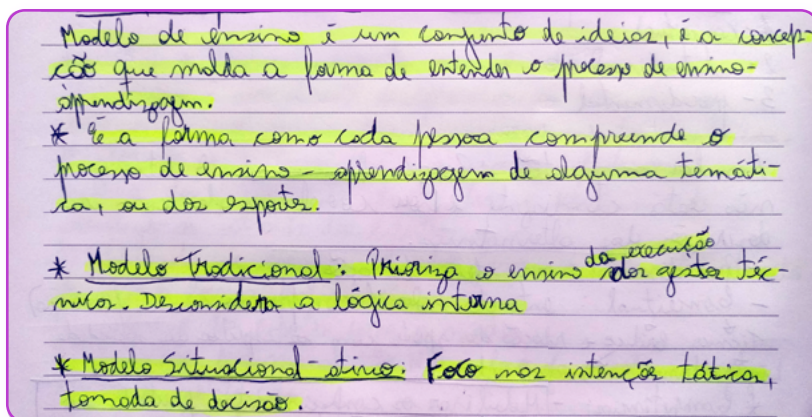 Modelo de ensino é um conjunto de ideias, é a concep-
ção que molda a forma de entender o processo de ensino-
aprendizagem.
* É a forma como cada pessoa compreende o
processo de ensino-aprendizagem de alguma temáti-
ca, ou dos esportes.
* Modelo Tradicional: Prioriza o ensino da execução dos gestos téc-
nicos. Desconsidera a lógica interna
* Modelo Situacional-ativo: Foco nas intenções táticas,
tomada de decisão.